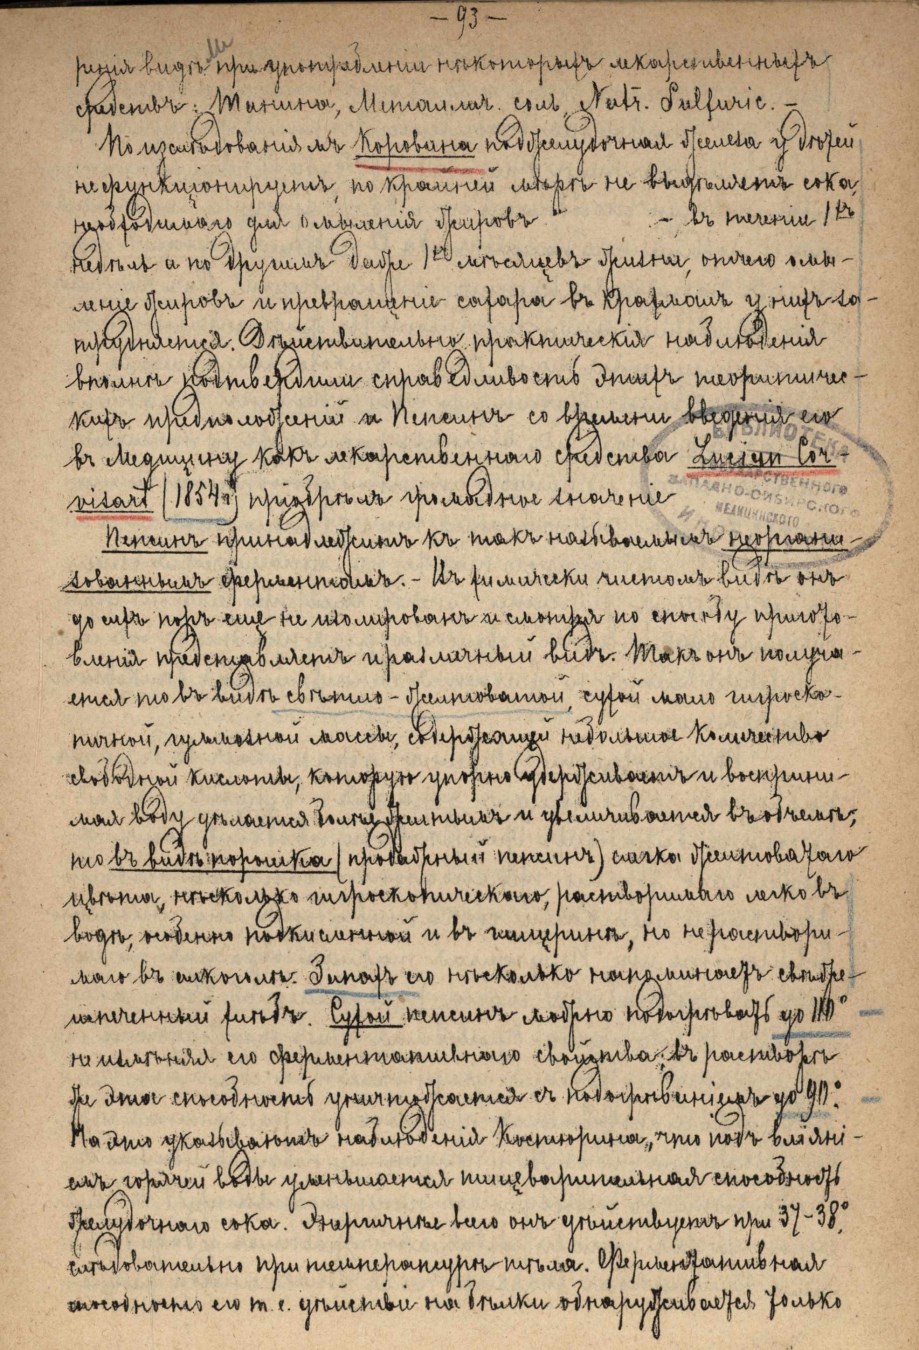 — 93 —
ренія видѣть при употребленіи нѣкоторыхъ лекарственныхъ
средствъ: Танина, Металлич. соль, Natr. Sulfuric. —
По изслѣдованіямъ Коровина поджелудочная железа у дѣтей
не функціонируетъ, по крайней мѣрѣ не выдѣляетъ сока,
необходимаго для омыленія жировъ — въ теченіе 1хъ
недѣль а по другимъ даже 1хъ мѣсяцевъ жизни, отчего омы-
леніе жировъ и превращеніе сахара въ крахмалъ у нихъ за-
трудняется. Дѣйствительно практическія наблюденія
вполнѣ подтвердили справедливость этихъ теоритичес-
кихъ предположеній и Пепсинъ со времени введенія его
въ Медицину какъ лекарственнаго средства Lucian Cor-
visart (1854 г) пріобрѣлъ громадное значеніе
Пепсинъ принадлежитъ къ такъ называемымъ неоргани-
зованнымъ ферментамъ. — Въ химически чистомъ видѣ онъ
до сихъ поръ еще не изолированъ и смотря по способу приготo-
вленія представляетъ и различный видъ. Такъ онъ получа-
ется то въ видѣ свѣтло-желтоватой, сухой мало гигроско-
пичной, гуммозной массы, содержащей небольшое количество
свободной кислоты, которую упорно удерживаетъ и восприни-
мая воду дѣлается болѣе желтымъ и увеличивается въ объемѣ;
то въ видѣ порошка (продажный пепсинъ) слегка желтоватаго
цвѣта, нѣсколько гигроскопическаго, растворимаго легко въ
водѣ, особенно подкисленной и въ глицеринѣ, но не раствори-
маго въ алкоголѣ. Запахъ его нѣсколько напоминаетъ свѣже-
печенный хлѣбъ. Сухой пепсинъ можно подогрѣвать до 110°
не измѣняя его ферментативнаго свойства; въ растворѣ
же эта способность уничтожается съ подогрѣваніемъ до 90°.
На это указываютъ наблюденія Костюрина, что подъ вліяні-
емъ горячей воды уменьшается пищеварительная способность
желудочнаго сока. Энергичнѣе всего онъ дѣйствуетъ при 37-38°,
слѣдовательно при температурѣ тѣла. Ферментативная
способность его т. е. дѣйствіе на бѣлки обнаруживается только
БИБЛИОТЕКА
ГОСУДАРСТВЕННОГО
ЗАПАДНО-СИБИРСКОГО
МЕДИЦИНСКОГО